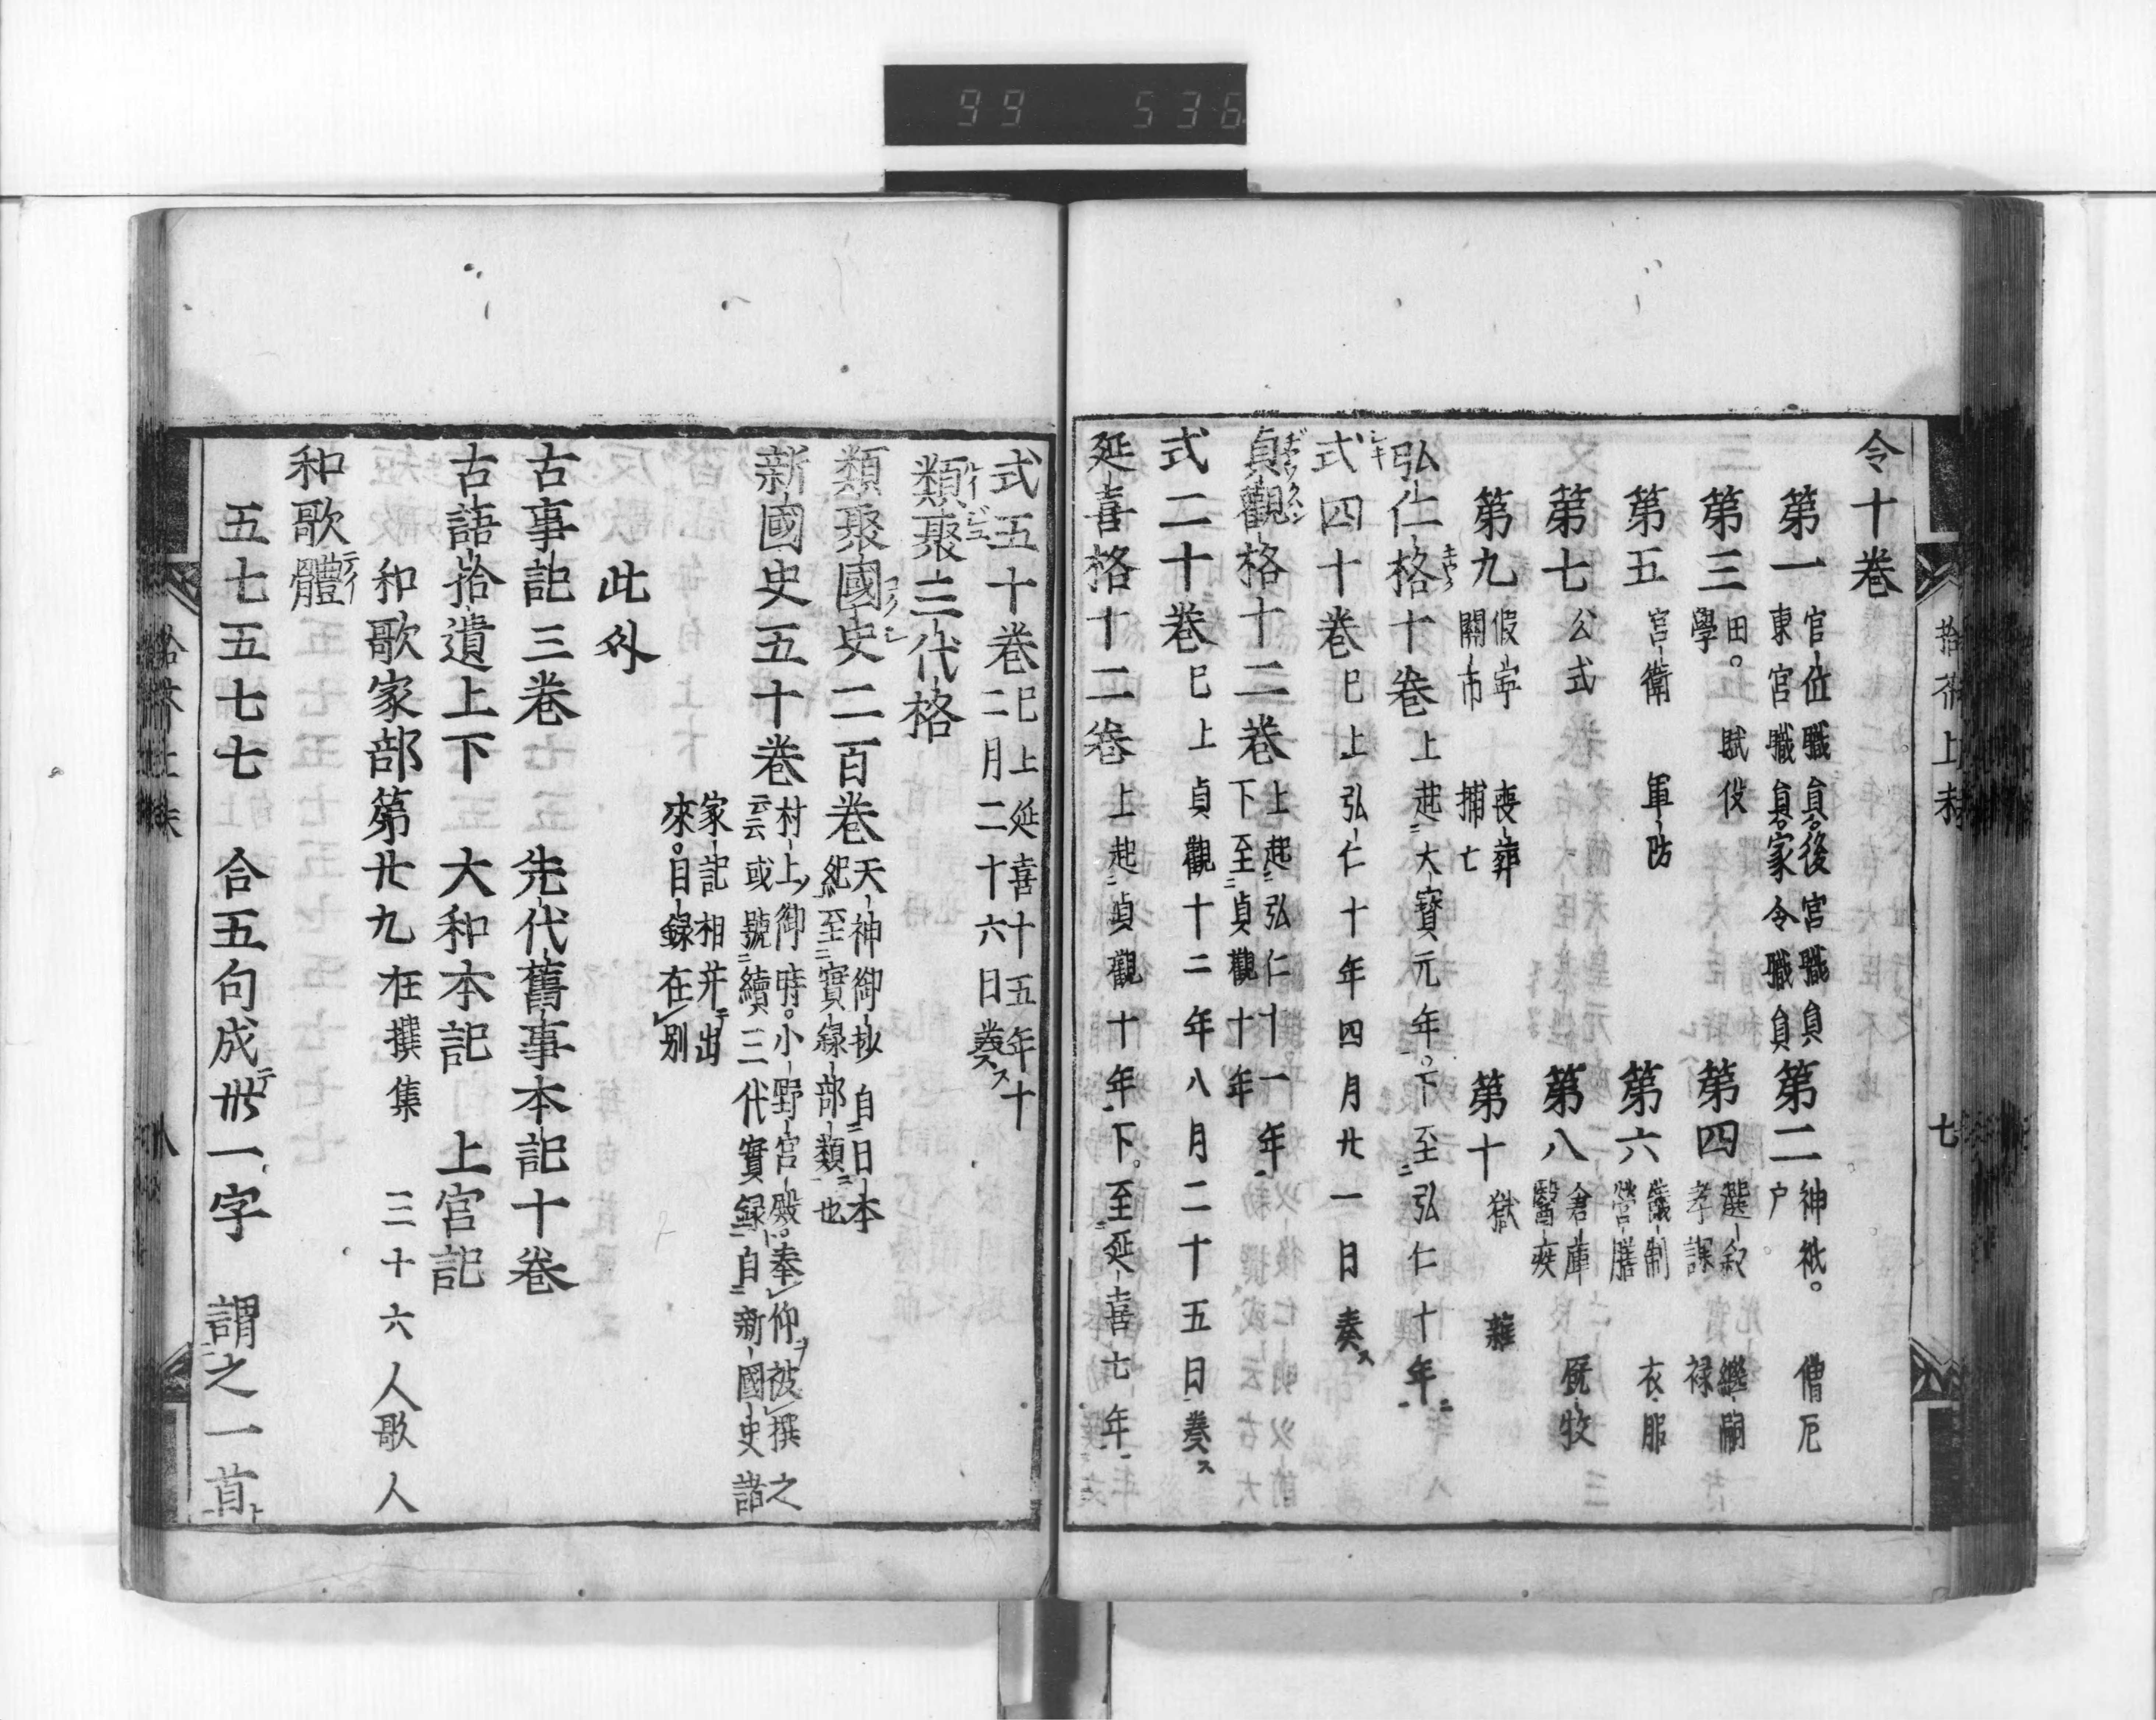 99 536
令十巻
第一 官位職員後宮職員 東宮職員家令職員 第二 神祇。僧尼 戸
第三 田。賦役 學 第四 選叙 継嗣 考課 禄
第五 宮衛 軍防 第六 儀制 衣服 營膳
第七 公式 第八 倉庫 厩牧 醫疾
第九 假寧 喪葬 關市 捕亡 第十 獄 雜
弘仁格十巻 上起大寶元年。下至弘仁十年
式四十巻 巳上弘仁十年四月廿一日奏ス
貞觀格十二巻 上起弘仁十一年 下至貞觀十年
式二十巻 巳上貞觀十二年八月二十五日奏ス
延喜格十二巻 上起貞觀十年下。至延喜七年
拾芥上末 七
式五十巻 巳上延喜十五年十 二月二十六日奏ス
類聚三代格
類聚國史二百巻 天神御抄 自日本 紀至實録部類也
新國史五十巻 村上御時。小野宮殿。奉仰被撰之 云云或號續三代實録自新國史諸
家記相并出 來。目録在別
此外
古事記三巻 先代舊事本記十巻
古語拾遺上下 大和本記 上宮記
和歌家部第廿九 在撰集 三十六人歌人
和歌體
五七五七七 合五句成卅一字 謂之一首
拾芥上末 八